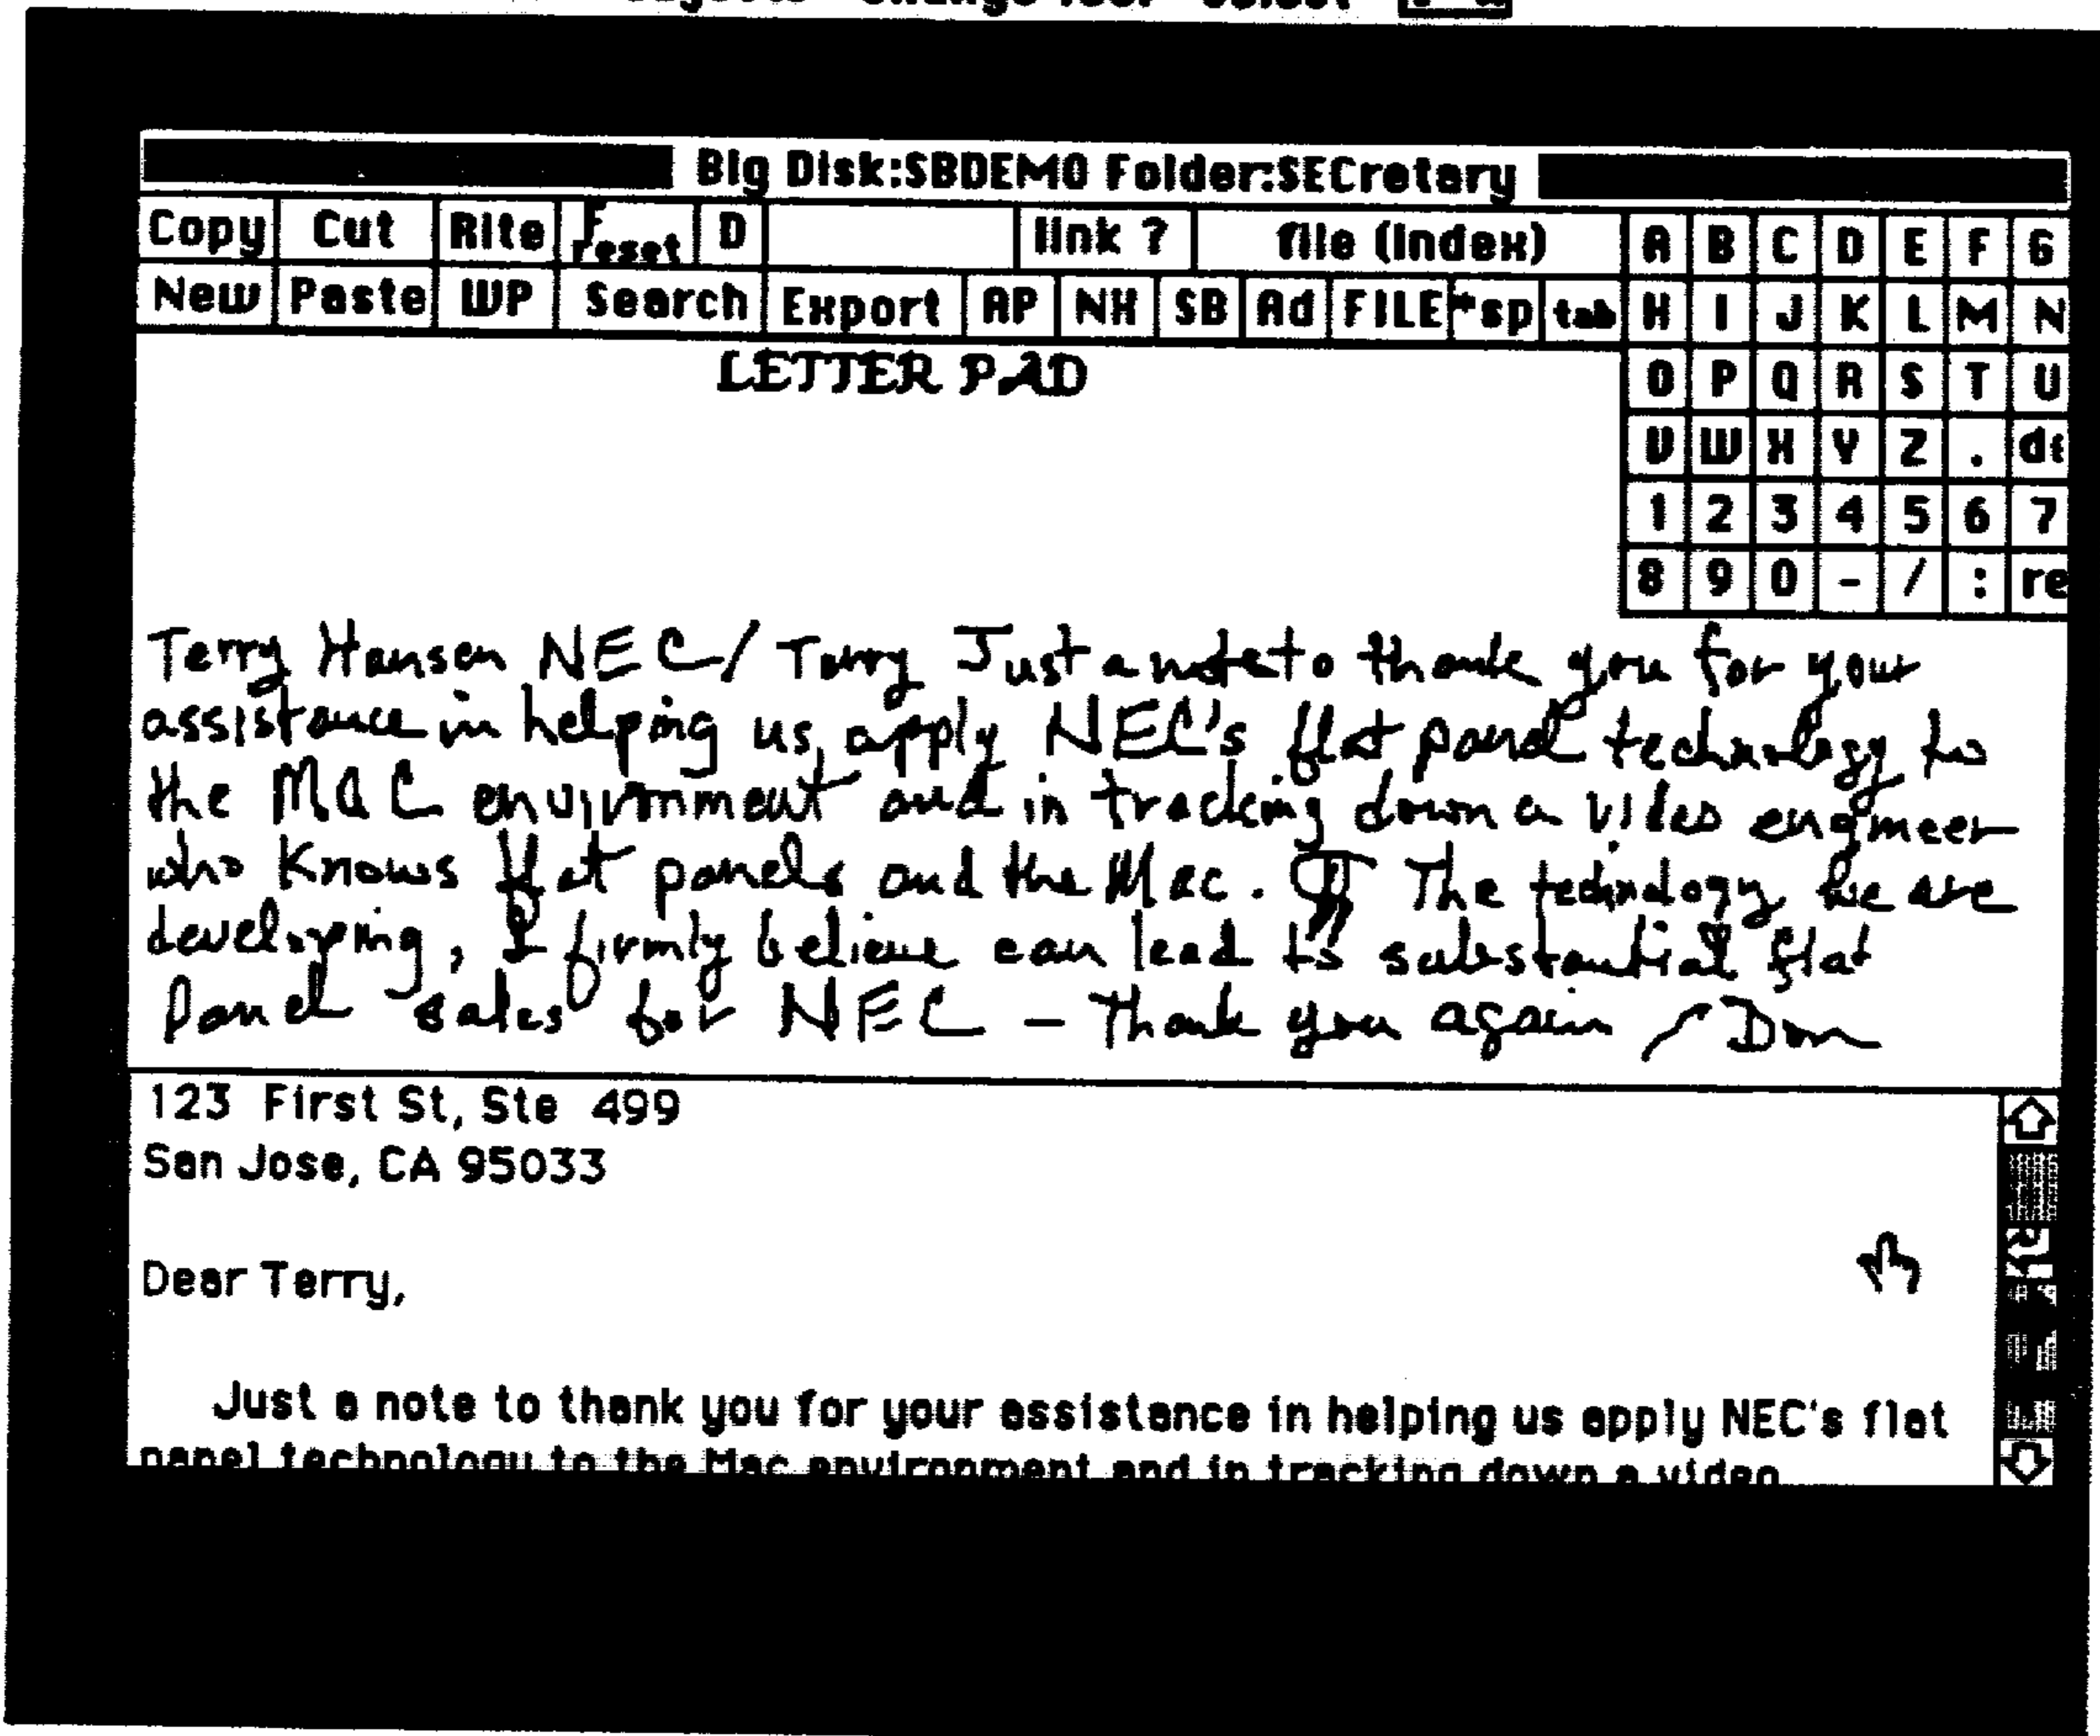 Big Disk:SBDEMO Folder:SECretary
Copy Cut Rite F reset D link ? file (index) A B C D E F G
New Paste WP Search Export AP NX SB Ad FILE *sp tab H I J K L M N
LETTER PAD
O P Q R S T U
V W X Y Z . dt
1 2 3 4 5 6 7
8 9 0 - / : re
Terry Hansen NEC/ Terry Just a note to thank you for your
assistance in helping us apply NEC's flat panel technology to
the MAC environment and in tracking down a video engineer
who knows flat panels and the Mac. ¶ The technology we are
developing, I firmly believe can lead to substantial flat
Panel sales for NEC - Thank you again / Don
123 First St, Ste 499
San Jose, CA 95033
Dear Terry,
Just a note to thank you for your assistance in helping us apply NEC's flat
panel technology to the Mac environment and in tracking down a video